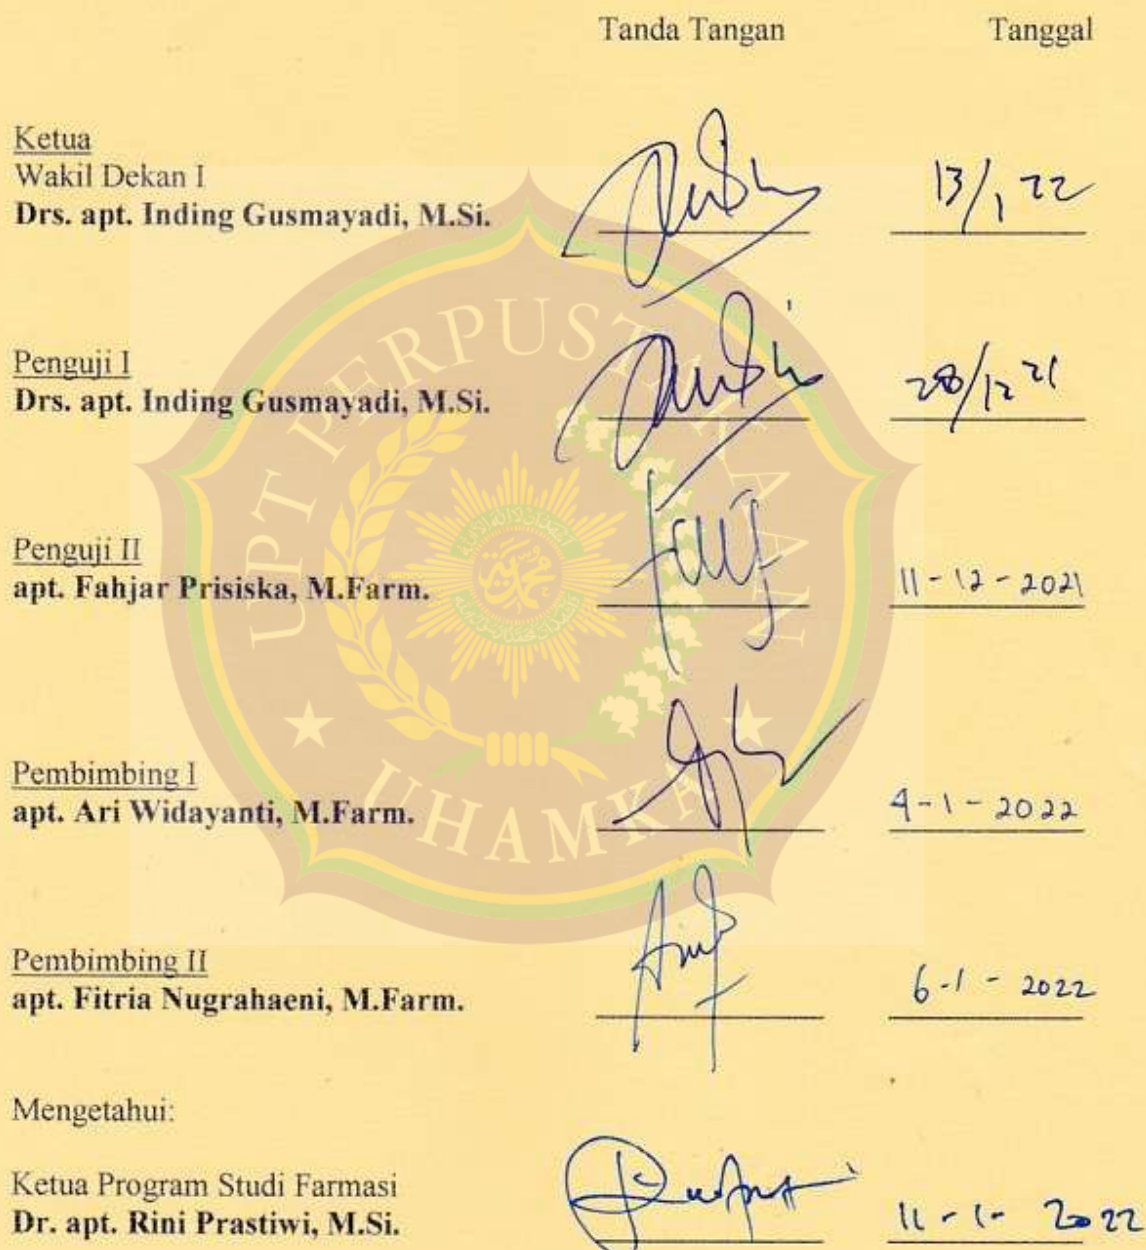 Tanda Tangan Tanggal
Ketua
Wakil Dekan I
Drs. apt. Inding Gusmayadi, M.Si. 13/1 22
Penguji I
Drs. apt. Inding Gusmayadi, M.Si. 28/12 21
Penguji II
apt. Fahjar Prisiska, M.Farm. 11-12-2021
Pembimbing I
apt. Ari Widayanti, M.Farm. 4-1-2022
Pembimbing II
apt. Fitria Nugrahaeni, M.Farm. 6-1-2022
Mengetahui:
Ketua Program Studi Farmasi
Dr. apt. Rini Prastiwi, M.Si. 11-1-2022
UPT PERPUSTAKAAN
UHAMKA